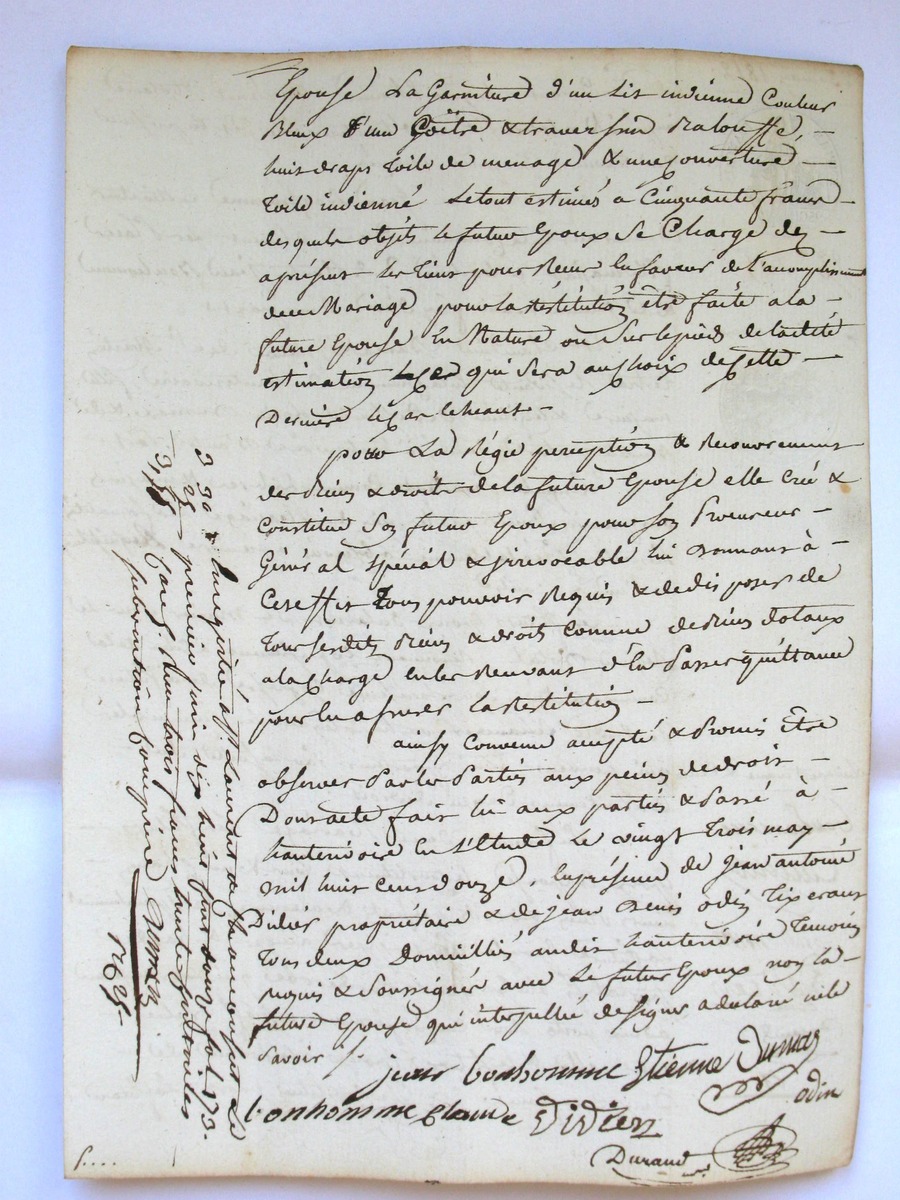 Epouse La Garniture d'un Lit indienne Couleur
Bleux d'un Goëtre & traversin Balouffe,
huit draps toile de menage & une Couverture
toile indienné Le tout estimés a Cinquante francs
desquels objets le futur Epoux Se Charge des
apresent Les tient pour Reçus En faveur de l'accomplissement
de ce Mariage pour la Restitution être faite a la
future Epouse En Nature ou Sur le pied de la dité
estimation qui Sera au choix de Cette
Derniere le Cas Echéant
pour La Régie perception & Recouvrement
des Biens & droits de la future Epouse elle Créé &
Constitue Son futur Epoux pour Son Procureur
Général Spécial & irrévocable lui Donnant à
Cet effet Tous pouvoir Requis & de disposer de
Tous ses dits Biens & droits Comme de Biens dotaux
a la Charge en les Recevant d'En Passer quittance
pour En assurer La Restitution
ainsy Convenu accepté & Promis Être
observer Par les Parties aux peines de droit
Dont acte fait lu aux parties & Passé à
hauterivoire En L'Etude Le vingt Trois may
mil huit Cent douze, En présence de jean antoine
Didier propriétaire & de jean Denis odin Tixerant
Tous deux Domiciliés audit hauterivoire Temoins
requis & Soussignés avec Le futur Epoux non la
future Epouse qui interpellée de signer a declaré ne le
Savoir
jean bonhomme Etienne Dumas
odin
bonhomme Claude Didier
Durand
3 30 Enregistré à St Laurent de Chamousset Le
25 premier juin dix huit cent douze fol 173.
3,85 Case 5. Reçu trois francs trente centimes
subvention comprise